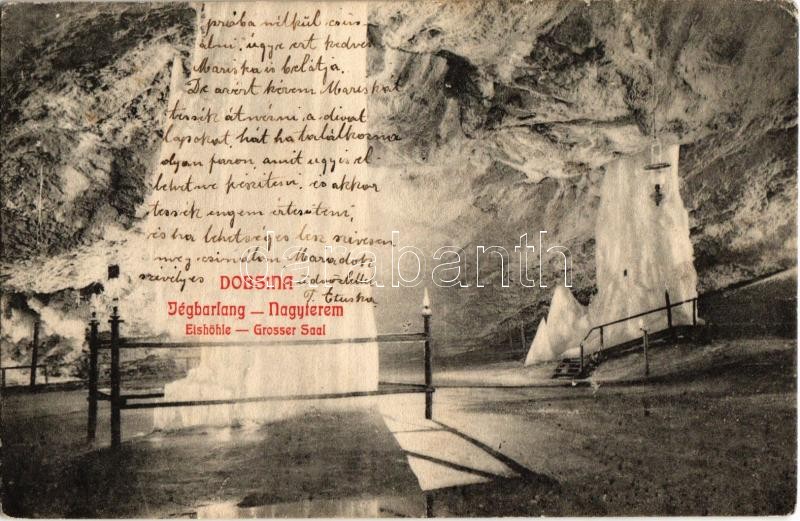 próba nélkül csin-
álni, úgye ezt kedves
Mariska is belátja.
De azért kérem Mariskát
tessék átnézni a divat
lapokat, hát ha találkozna
olyan páron amit úgy is el
lehetne készíteni, és akkor
tessék engem értesíteni,
és ha lehetséges lesz szívesen
meg csinálom Maradok
szívélyes üdvözlettel
T. Etuska
DOBSINA
Jégbarlang — Nagyterem
Eishöhle — Grosser Saal
darabanth.com